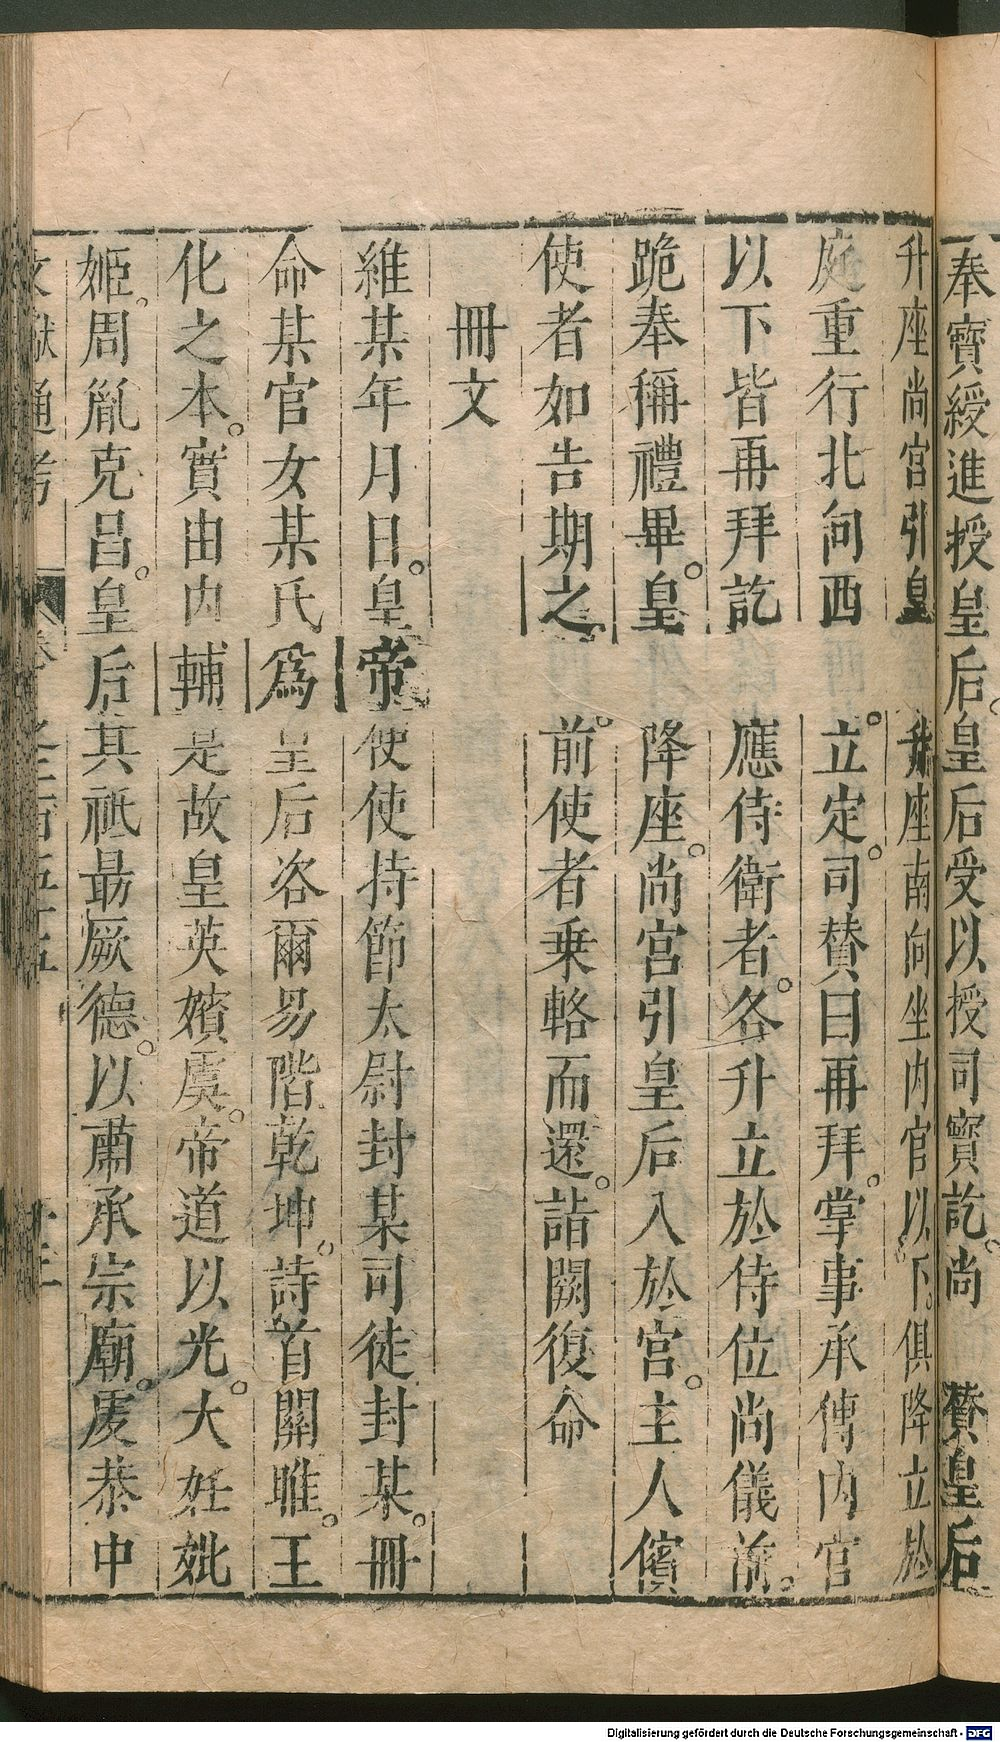 奉寶綬進授皇后皇后受以授司寶訖尚 贊皇后
升座尚宮引皇 升座南向坐内官以下俱降立於
庭重行北向西 立定司贊曰再拜掌事承傳内官
以下皆再拜訖 應侍衛者各升立於侍位尚儀前
跪奉稱禮畢皇 降座尚宮引皇后入於宮主人儐
使者如告期之 前使者乗輅而還詣闕復命
冊文
維某年月日皇帝使使持節太尉封某司徒封某冊
命某官女某氏爲皇后咨爾易階乾坤詩首關雎王
化之本實由内輔是故皇英嬪虞帝道以光大妊妣
姬周胤克昌皇后其祗勗厥德以肅承宗廟虔恭中
文獻通考 卷之二百五十五
Digitalisierung gefördert durch die Deutsche Forschungsgemeinschaft - DFG